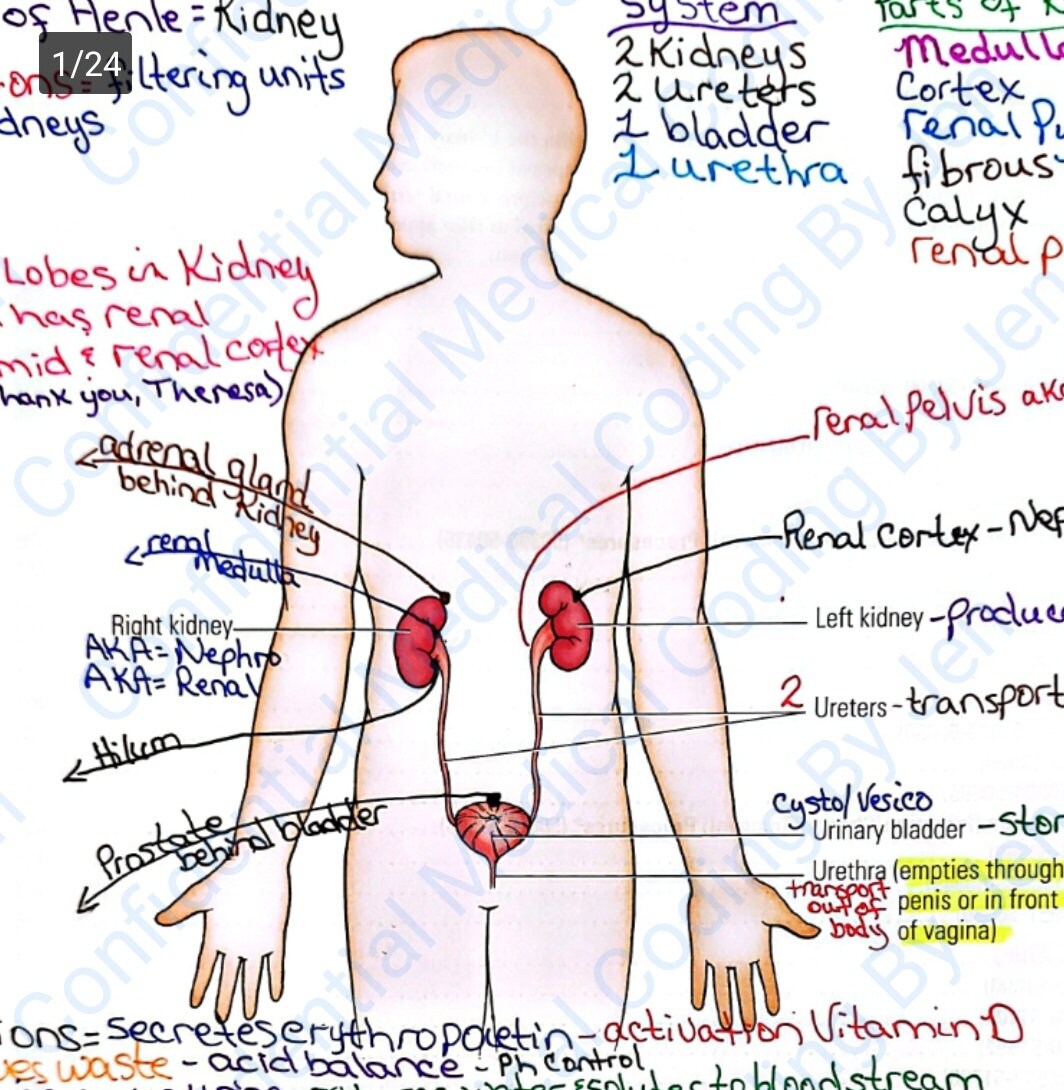 of Henle = Kidney
1/24
filtering units
dneys
System
2 Kidneys
2 ureters
1 bladder
1 urethra
Parts of
Medulla
Cortex
renal
fibrous
Calyx
renal
Lobes in Kidney
has renal
mid & renal cortex
hank you, Theresa)
adrenal gland
behind Kidney
renal
Medulla
Right kidney
AKA= Nephro
AKA= Renal
Hilum
Prostate
behind bladder
renal Pelvis aka
Renal Cortex - Nep
Left kidney - produc
2 Ureters - transport
Cysto/Vesico
Urinary bladder - Stor
Urethra (empties through
penis or in front
of vagina)
transport
out of
body
ions = Secretes erythropoietin - activation Vitamin D
es waste - acid balance - Ph Control
to blood stream
Confidential Medical Coding By Jen